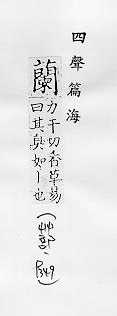 四聲篇海
蘭
力干切香草易
曰其臭如丨也
(艸部, P349)